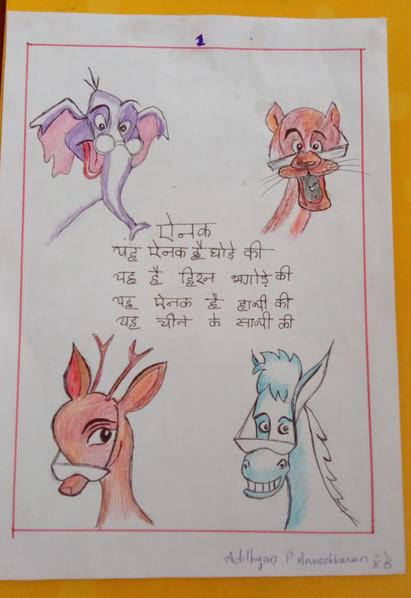 1
ऐनक
यह ऐनक है घोड़े की
यह है हिरन भगोड़े की
यह ऐनक है हाथी की
यह चीते के साथी की
Adithyan P Anneekkaran X B